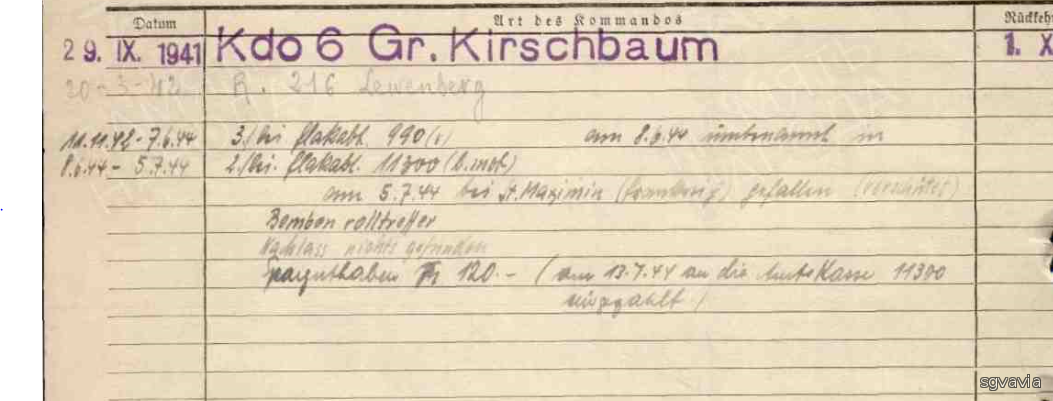 Datum Art des Kommandos Rückkeh
29. IX. 1941 Kdo 6 Gr. Kirschbaum 1. X
20-3-42 R. 216 Lewenberg
11.11.42-7.6.44 3./lei Flakabt. 990(v) am 8.6.44 umbenannt in
8.6.44 - 5.7.44 2./lei. Flakabt. 11300 (b.mot)
am 5.7.44 bei St. Maximin (Frankreich) gefallen (verschüttet)
Bomben volltreffer
Nachlass nichts gefunden
Sparguthaben 120.- (am 13.7.44 an die Amtskasse 11300
)
sgvavia